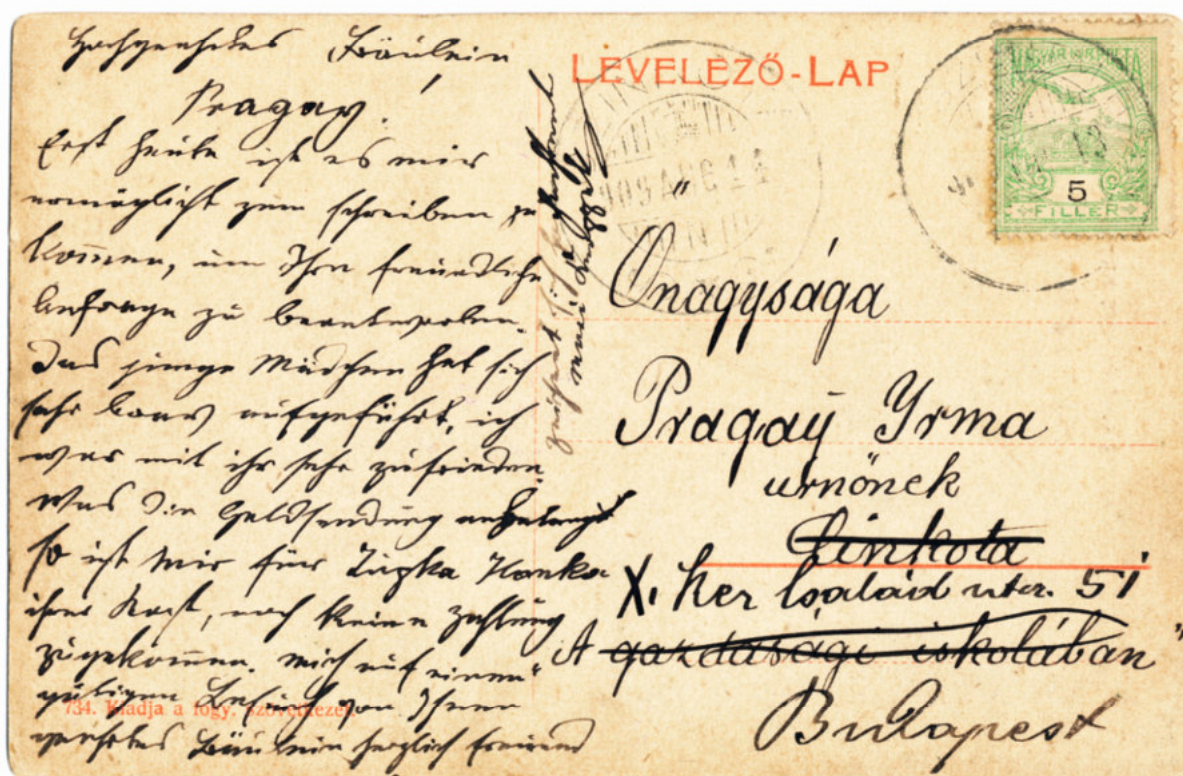 Hochgeehrtes Fräulein
Pragay!
Erst heute ist es mir
ermöglicht zum schreiben zu
kommen, um Ihre freundliche
Anfrage zu beantworten.
Das junge Mädchen hat sich
sehr brav aufgeführt, ich
war mit ihr sehr zufrieden.
Was die Geldsendung anbelangt
so ist mir für Zuzka Hanka
ihre Kost, noch keine Zahlung
zugekommen. Mich auf einen
gütigen Besuch von Ihnen
geehrtes Fräulein herzlich freuend
zeichnet
LEVELEZŐ-LAP
MAGYAR KIR. POSTA
5
FILLÉR
13
Önagysága
Pragay Yrma
urnőnek
Cinkota
X. Ker Család utcz. 51
A gazdasági iskolában
Budapest
734. Kiadja a fogy. szövetkezet